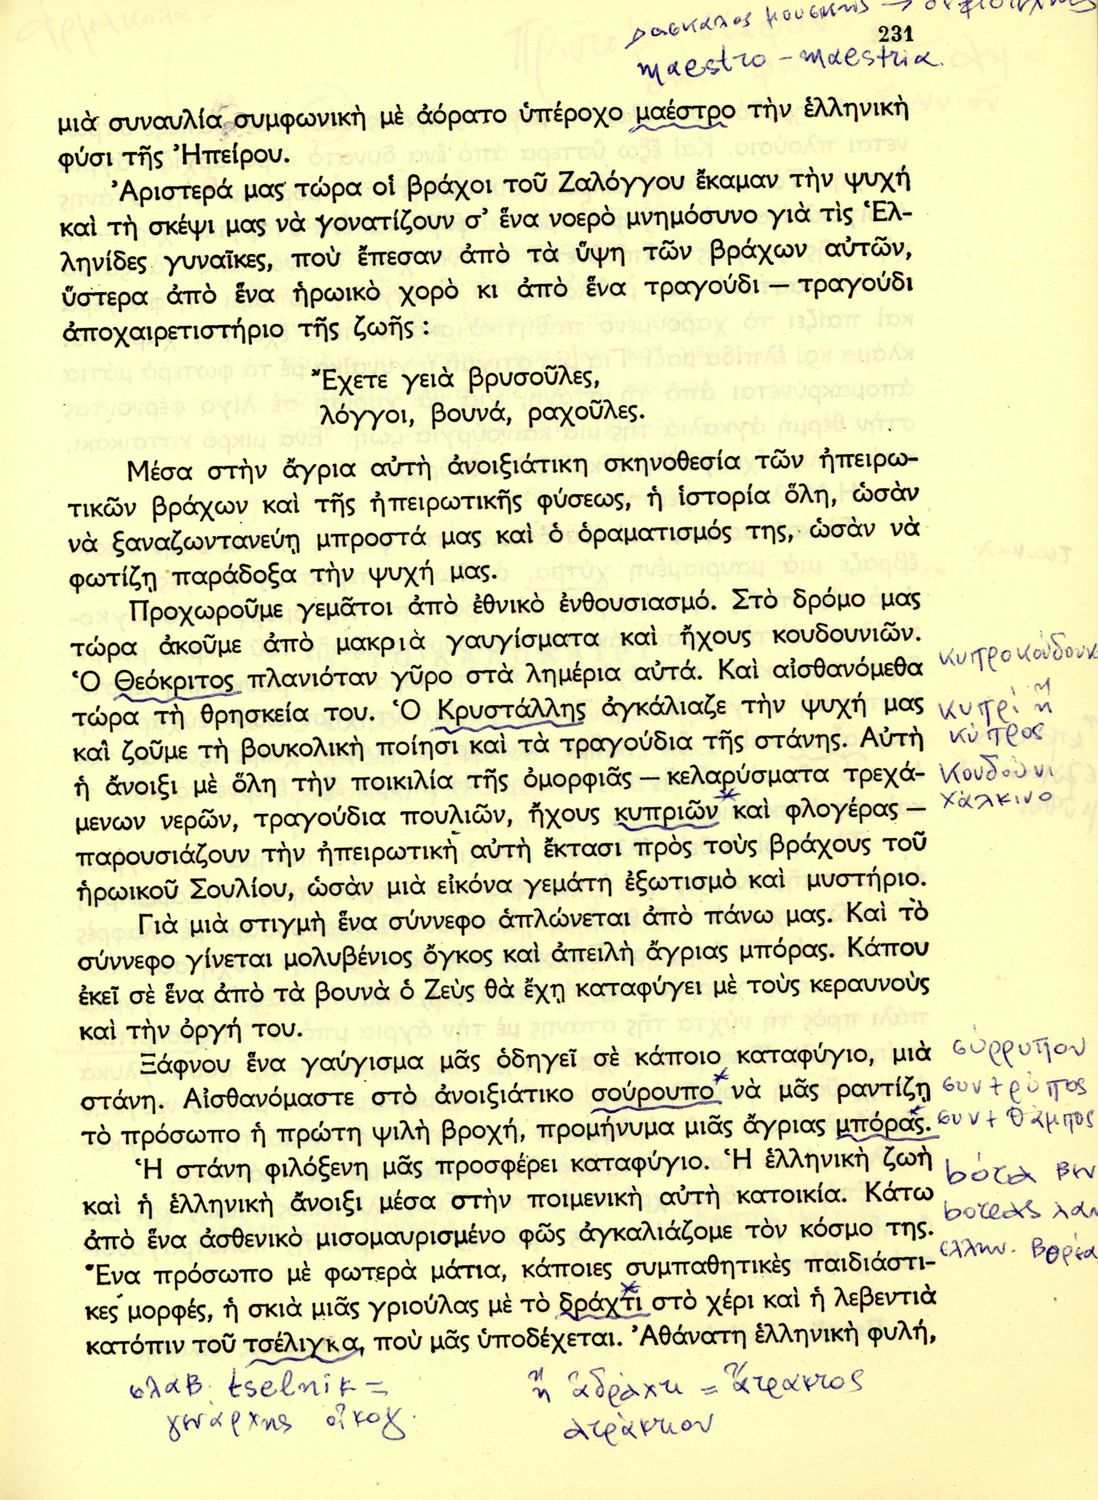 δάσκαλος μουσικής →
231
maestro – maestria
μιὰ συναυλία συμφωνικὴ μὲ ἀόρατο ὑπέροχο μαέστρο τὴν ἑλληνικὴ
φύσι τῆς Ἠπείρου.
Ἀριστερά μας τώρα οἱ βράχοι τοῦ Ζαλόγγου ἔκαμαν τὴν ψυχή
καὶ τὴ σκέψι μας νὰ γονατίζουν σ’ ἕνα νοερὸ μνημόσυνο γιὰ τὶς Ἑλ-
ληνίδες γυναῖκες, ποὺ ἔπεσαν ἀπὸ τὰ ὕψη τῶν βράχων αὐτῶν,
ὕστερα ἀπὸ ἕνα ἡρωικὸ χορὸ κι ἀπὸ ἕνα τραγούδι — τραγούδι
ἀποχαιρετιστήριο τῆς ζωῆς :
Ἔχετε γειὰ βρυσοῦλες,
λόγγοι, βουνά, ραχοῦλες.
Μέσα στὴν ἄγρια αὐτὴ ἀνοιξιάτικη σκηνοθεσία τῶν ἠπειρω-
τικῶν βράχων καὶ τῆς ἠπειρωτικῆς φύσεως, ἡ ἱστορία ὅλη, ὡσὰν
νὰ ξαναζωντανεύῃ μπροστά μας καὶ ὁ ὁραματισμός της, ὡσὰν νὰ
φωτίζῃ παράδοξα τὴν ψυχή μας.
Προχωροῦμε γεμᾶτοι ἀπὸ ἐθνικὸ ἐνθουσιασμό. Στὸ δρόμο μας
τώρα ἀκοῦμε ἀπὸ μακριὰ γαυγίσματα καὶ ἤχους κουδουνιῶν.
Ὁ Θεόκριτος πλανιόταν γῦρο στὰ λημέρια αὐτά. Καὶ αἰσθανόμεθα
τώρα τὴ θρησκεία του. Ὁ Κρυστάλλης ἀγκάλιαζε τὴν ψυχή μας
καὶ ζοῦμε τὴ βουκολικὴ ποίησι καὶ τὰ τραγούδια τῆς στάνης. Αὐτὴ
ἡ ἄνοιξι μὲ ὅλη τὴν ποικιλία τῆς ὀμορφιᾶς — κελαρύσματα τρεχά-
μενων νερῶν, τραγούδια πουλιῶν, ἤχους κυπριῶν* καὶ φλογέρας —
παρουσιάζουν τὴν ἠπειρωτικὴ αὐτὴ ἔκτασι πρὸς τοὺς βράχους τοῦ
ἡρωικοῦ Σουλίου, ὡσὰν μιὰ εἰκόνα γεμάτη ἐξωτισμὸ καὶ μυστήριο.
κυπροκούδουν
κυπρί ἢ
κύπρος
κουδούνι
χάλκινο
Γιὰ μιὰ στιγμὴ ἕνα σύννεφο ἁπλώνεται ἀπὸ πάνω μας. Καὶ τὸ
σύννεφο γίνεται μολυβένιος ὄγκος καὶ ἀπειλὴ ἄγριας μπόρας. Κάπου
ἐκεῖ σὲ ἕνα ἀπὸ τὰ βουνὰ ὁ Ζεὺς θὰ ἔχῃ καταφύγει μὲ τοὺς κεραυνοὺς
καὶ τὴν ὀργή του.
Ξάφνου ἕνα γαύγισμα μᾶς ὁδηγεῖ σὲ κάποιο καταφύγιο, μιὰ
στάνη. Αἰσθανόμαστε στὸ ἀνοιξιάτικο σούρουπο* νὰ μᾶς ραντίζῃ
τὸ πρόσωπο ἡ πρώτη ψιλὴ βροχή, προμήνυμα μιᾶς ἄγριας μπόρας.*
Ἡ στάνη φιλόξενη μᾶς προσφέρει καταφύγιο. Ἡ ἑλληνικὴ ζωὴ
καὶ ἡ ἑλληνικὴ ἄνοιξι μέσα στὴν ποιμενικὴ αὐτὴ κατοικία. Κάτω
ἀπὸ ἕνα ἀσθενικὸ μισομαυρισμένο φῶς ἀγκαλιάζομε τὸν κόσμο της.
Ἕνα πρόσωπο μὲ φωτερὰ μάτια, κάποιες συμπαθητικὲς παιδιάστι-
κες μορφές, ἡ σκιὰ μιᾶς γριούλας μὲ τὸ δράχτι* στὸ χέρι καὶ ἡ λεβεντιὰ
κατόπιν τοῦ τσέλιγκα, ποὺ μᾶς ὑποδέχεται. Ἀθάνατη ἑλληνικὴ φυλή,
σύρρυπον
συν + ρύπος
συν + θάμπος
bora βεν
boreas λατ
ελλην. βορέα
σλαβ. tselnik =
γενάρχης οἰκογ.
ἢ ἀδράχτι = ἄτρακτος
ατράκτιον